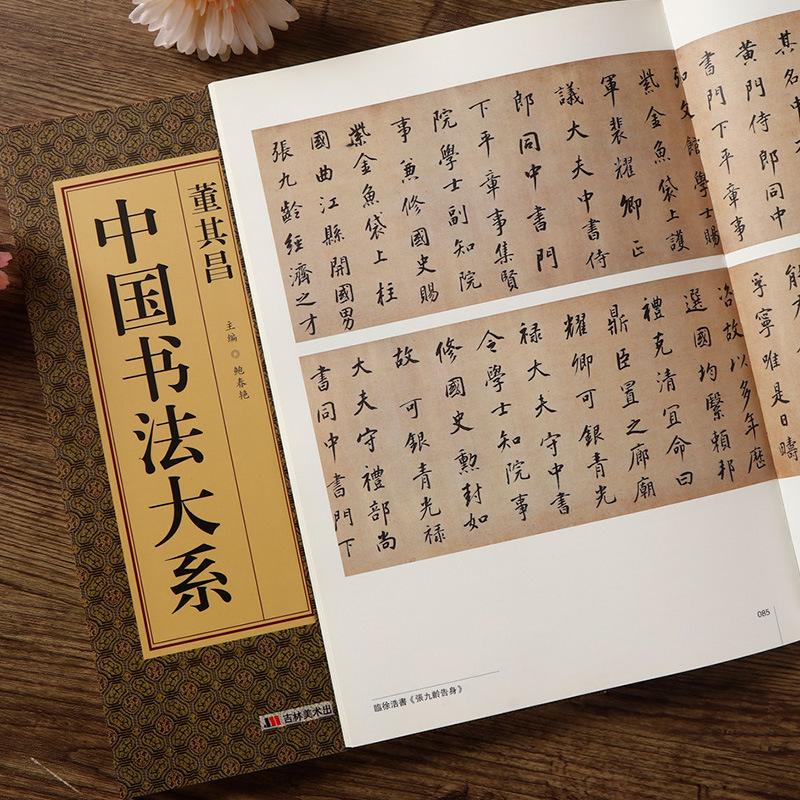 董其昌
中国书法大系
主编◎鲍春艳
吉林美术出
其名中
黄門侍郎同中
書門下平章事
弘文館學士賜
紫金魚袋上護
軍裴耀卿正
議大夫中書侍
郎同中書門
下平章事集賢
院學士副知院
事兼修國史賜
紫金魚袋上柱
國曲江縣開國男
張九齡經濟之才
孚寧唯是日疇
咨故以多年歷
選國均繄賴邦
禮克清宜命曰
鼎臣置之廊廟
耀卿可銀青光
禄大夫守中書
令學士知院事
修國史勲封如
故可銀青光禄
大夫守禮部尚
書同中書門下
臨徐浩書《張九齡告身》
085